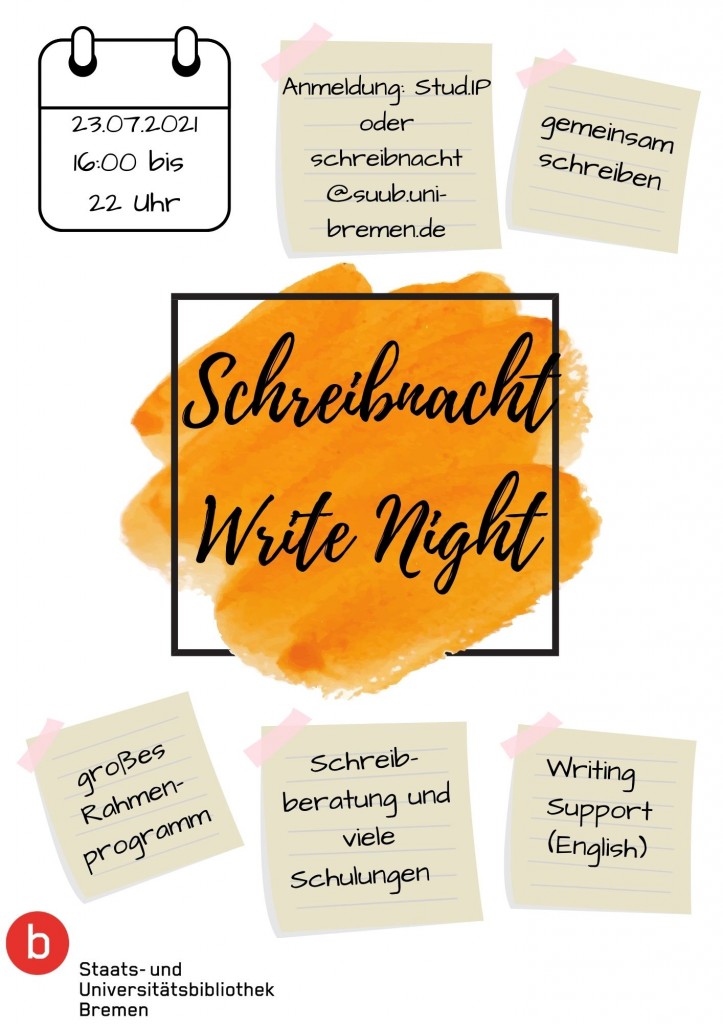 23.07.2021
16:00 bis
22 Uhr
Anmeldung: Stud.IP
oder
schreibnacht
@suub.uni-
bremen.de
gemeinsam
schreiben
Schreibnacht
Write Night
großes
Rahmen-
programm
Schreib-
beratung und
viele
Schulungen
Writing
Support
(English)
b
Staats- und
Universitätsbibliothek
Bremen